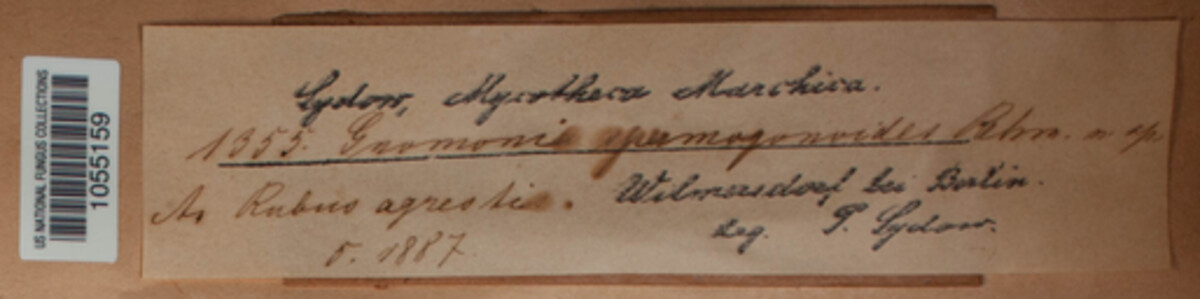 US NATIONAL FUNGUS COLLECTIONS
1055159
Sydow, Mycotheca Marchica.
1355. Gnomonia spermogonoides Rehm. n sp
An Rubus agrestis.
Wilmersdorf bei Berlin.
5. 1887
leg. P. Sydow.